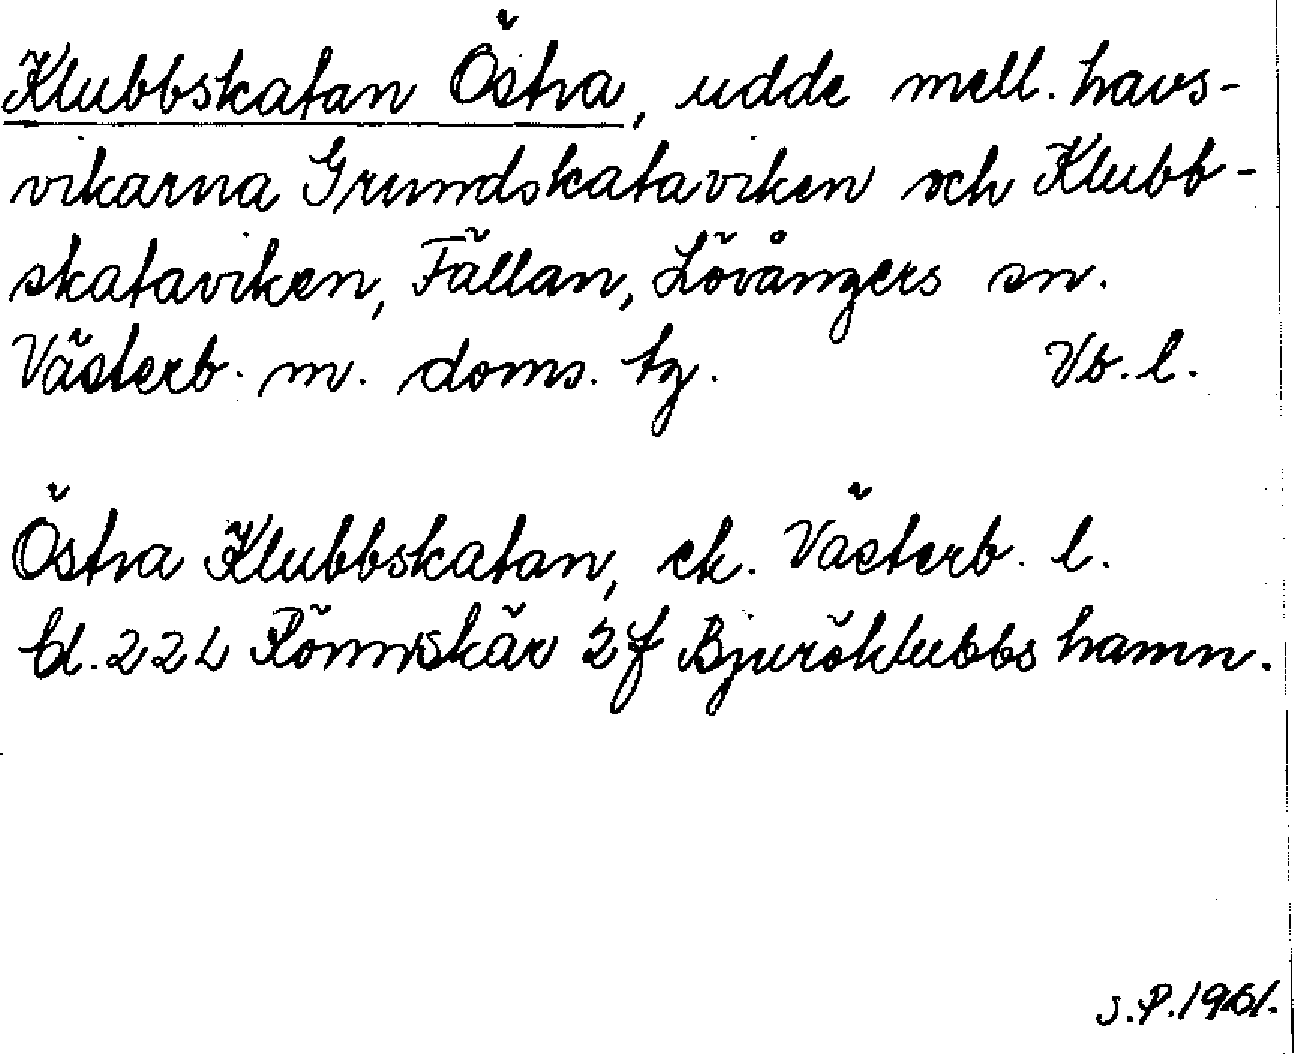 Klubbskatan Östra, udde mell. havs-
vikarna Grundskataviken och Klubb-
skataviken, Fällan, Lövångers sn.
Västerb. m. doms. tg. Vb. l.
Östra Klubbskatan, ek. Västerb. l.
bl. 22 L Rönnskär 2f Bjuröklubbs hamn.
J.P. 1961.